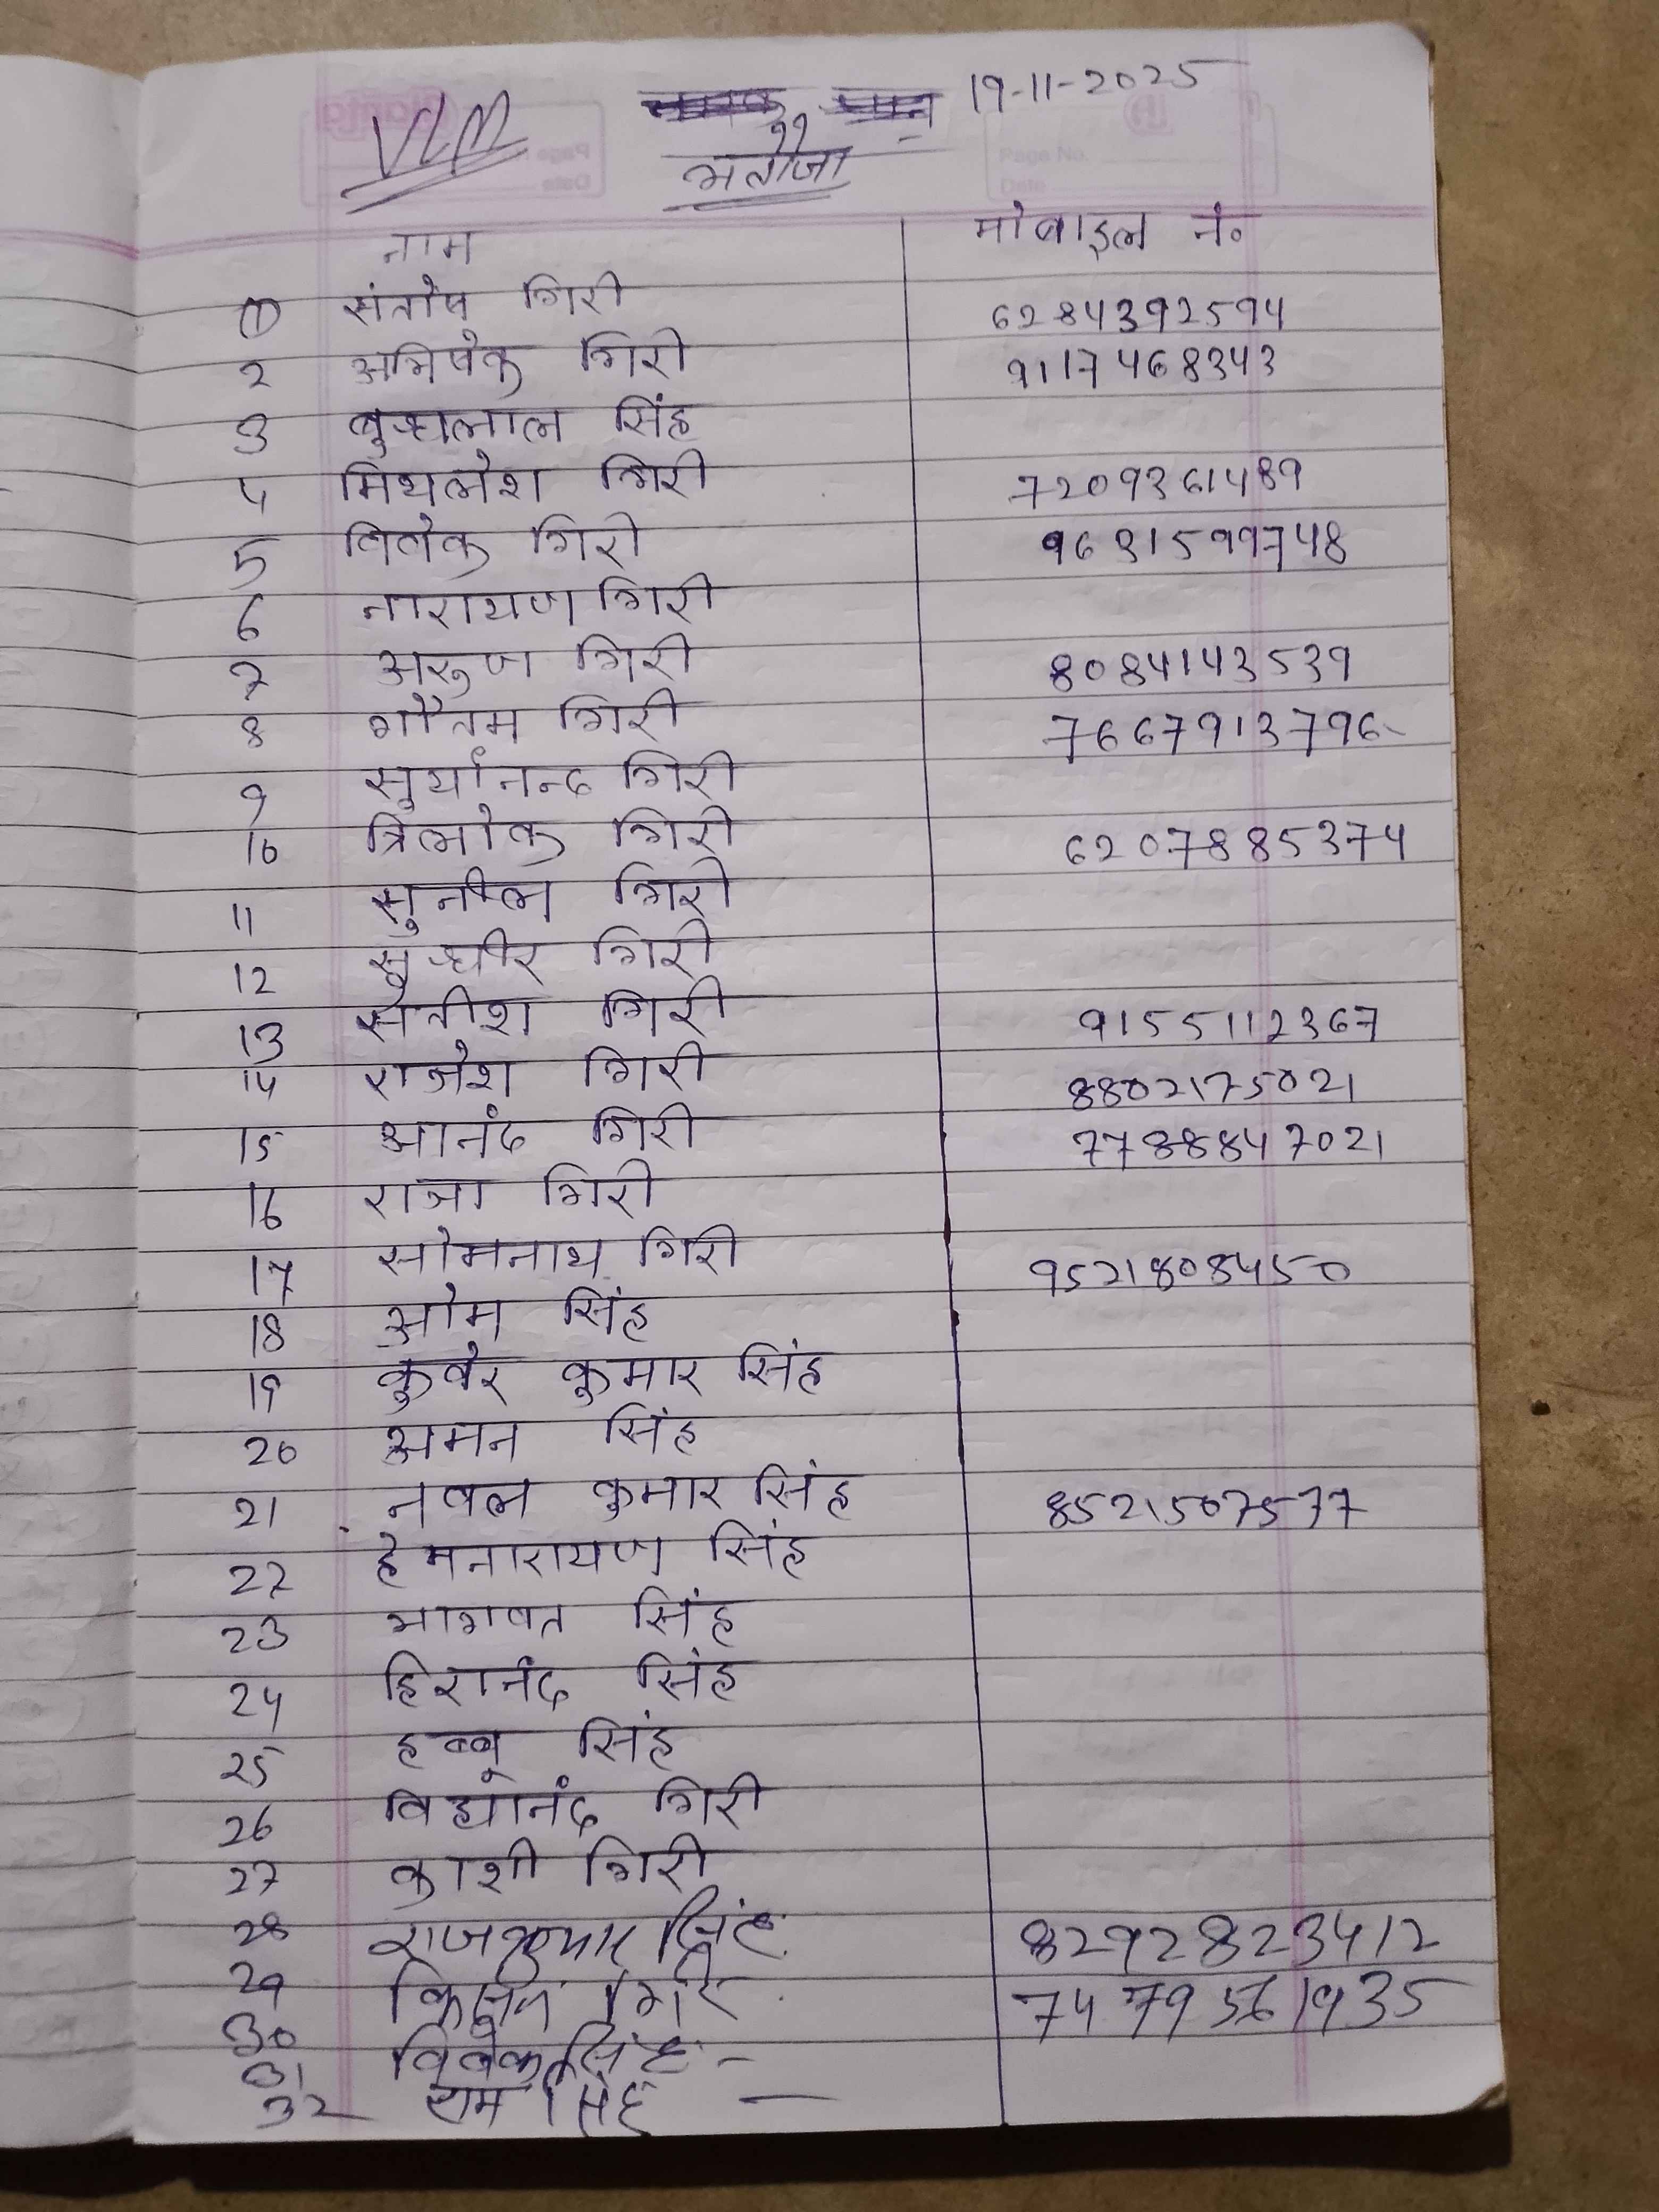 19-11-2025
VLM
भतीजा
नाम मोबाइल नं०
1 संतोष गिरी 6284392594
2 अभिषेक गिरी 9117468343
3 बुधलाल सिंह
4 मिथलेश गिरी 7209361489
5 विवेक गिरी 9631599748
6 नारायण गिरी
7 अरुण गिरी 8084143539
8 गौतम गिरी 7667913796
9 सुर्यानन्द गिरी
10 त्रिलोक गिरी 6207885374
11 सुनील गिरी
12 सुधीर गिरी
13 सतीश गिरी 9155112367
14 राजेश गिरी 8802175021
15 आनंद गिरी 7788847021
16 राजा गिरी
17 सोमनाथ गिरी 9521808450
18 ओम सिंह
19 कुवेर कुमार सिंह
20 अमन सिंह
21 नवल कुमार सिंह 8521507577
22 हेमनारायण सिंह
23 भागवत सिंह
24 हिरानंद सिंह
25 हब्बू सिंह
26 विद्यानंद गिरी
27 काशी गिरी
28 राजकुमार सिंह 8292823412
29 गिरि
30
31 विवेक सिंह –
32 राम सिंह —